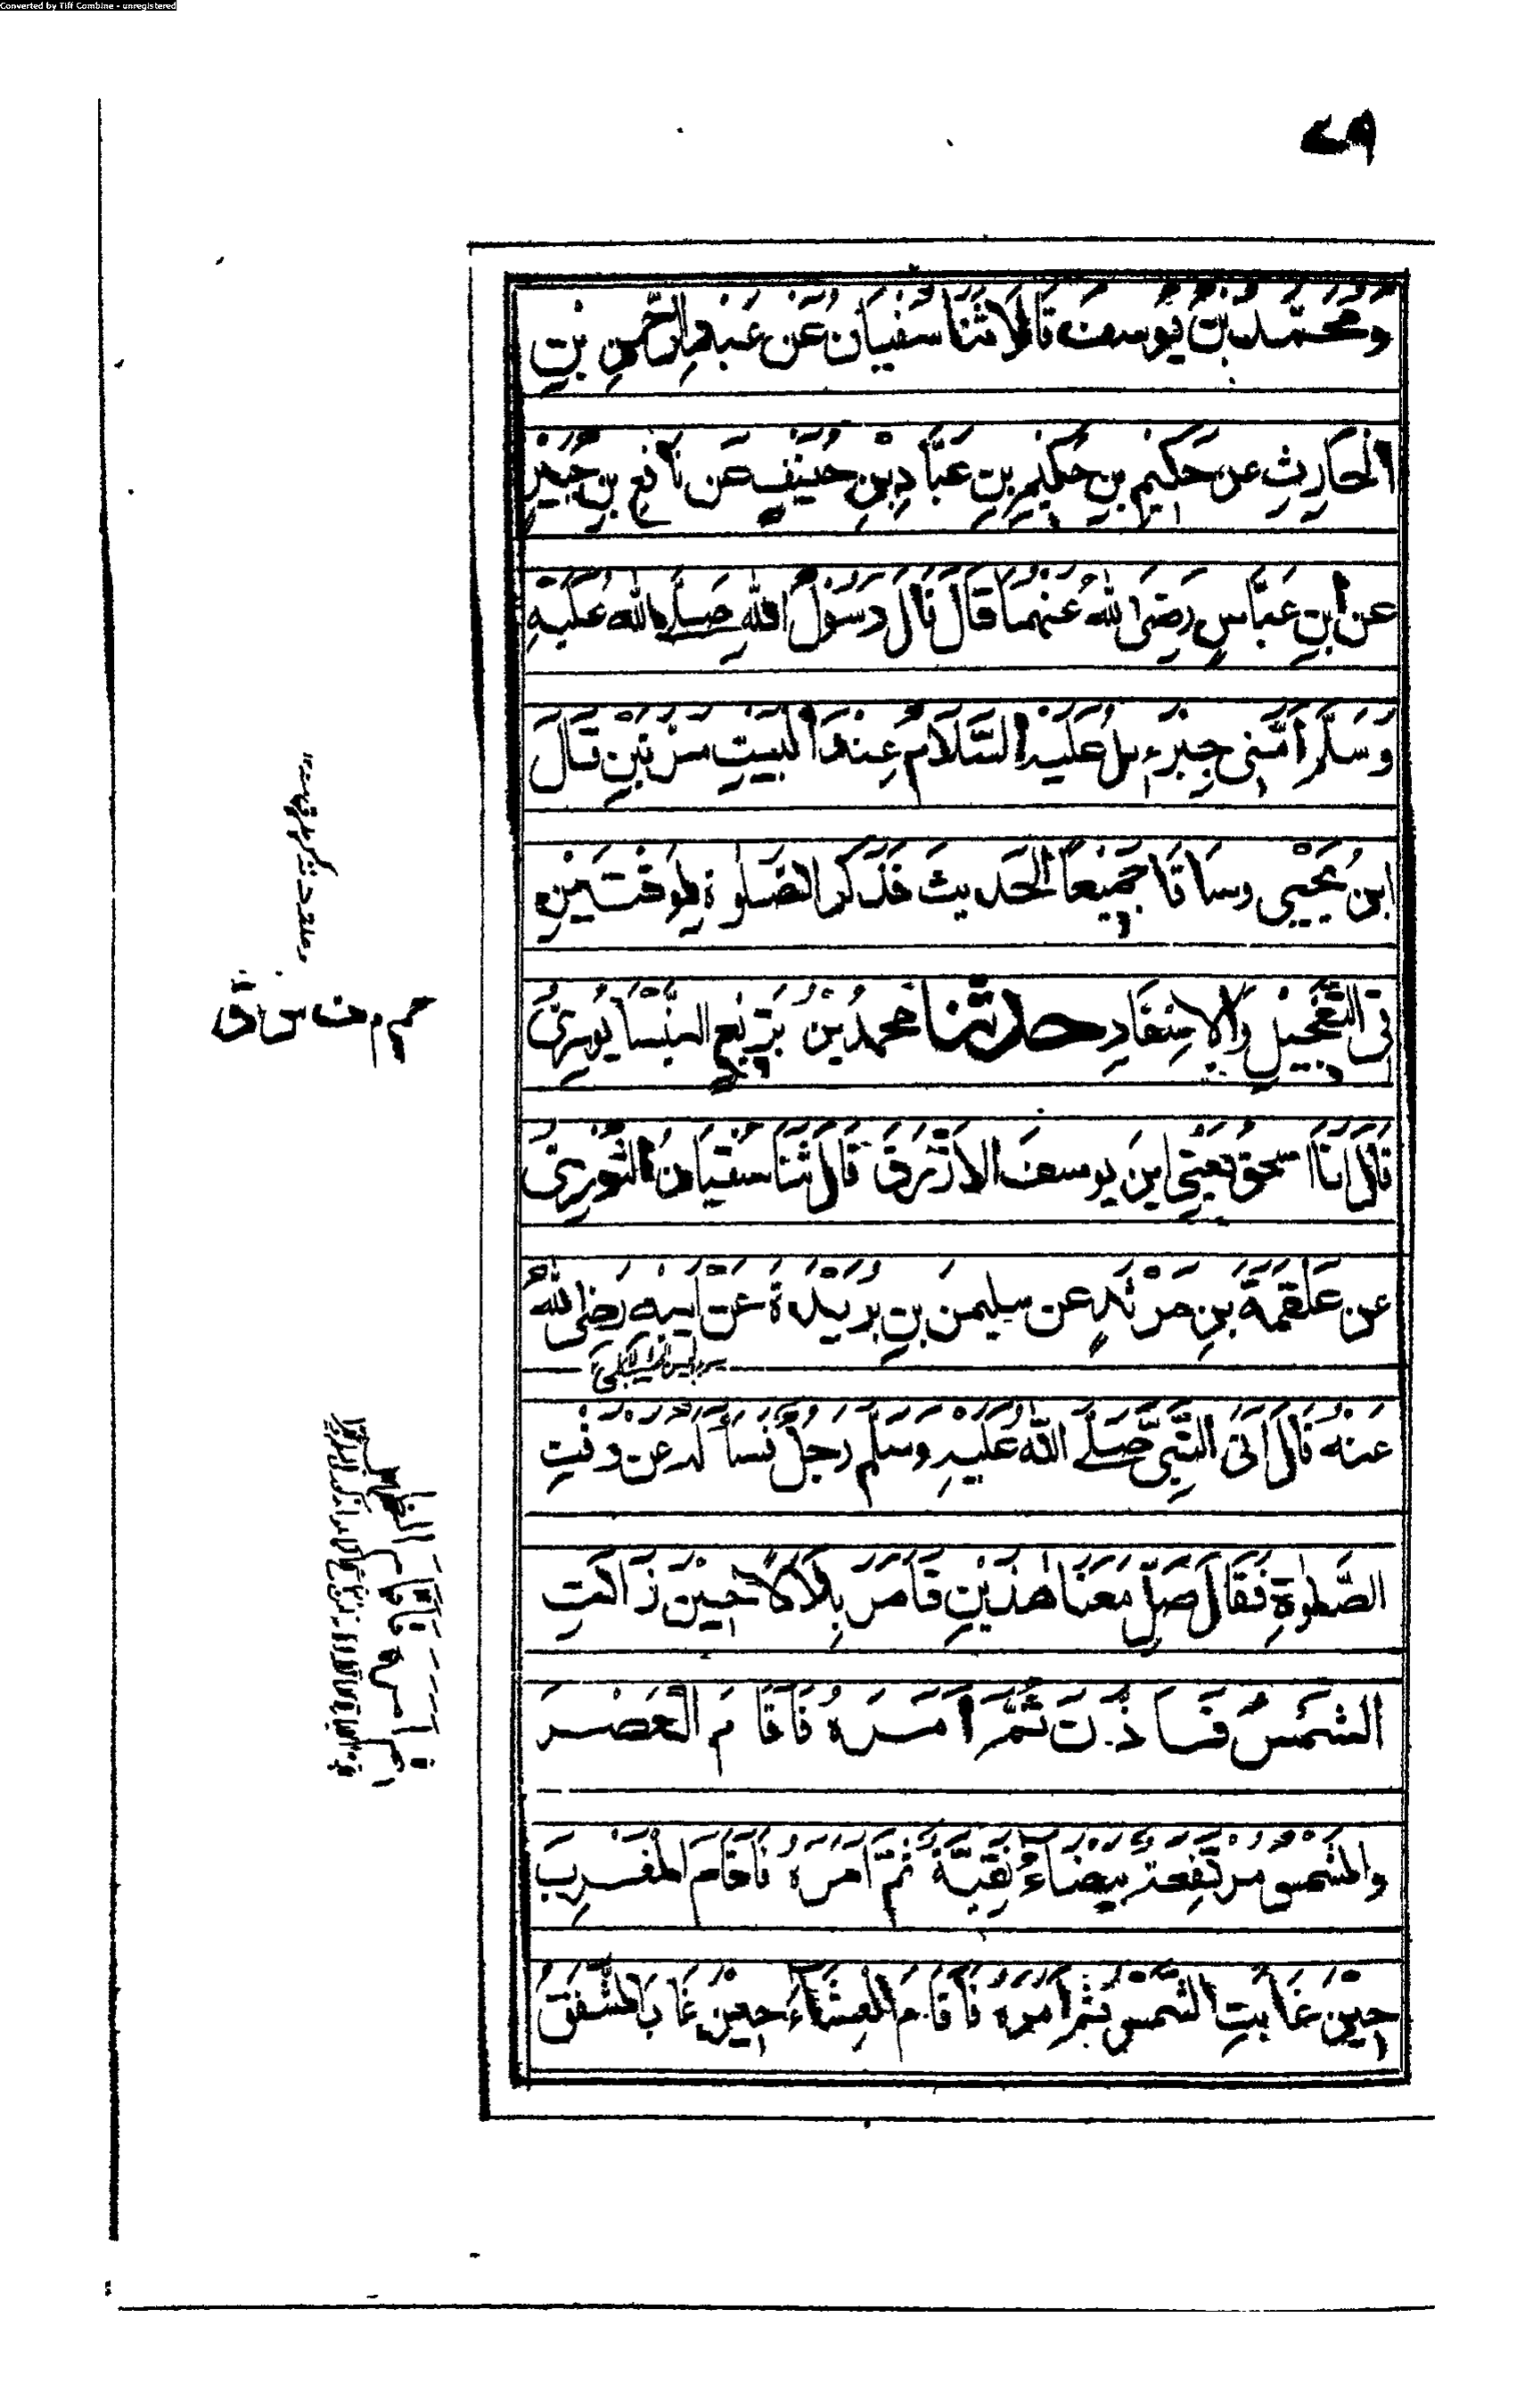 Converted by Tiff Combine - unregistered
وَمُحَمَّدُ بْنُ يُوسُفَ قَالَا ثَنَا سُفْيَانُ عَنْ عَبْدِ الرَّحْمٰنِ بْنِ
الْحَارِثِ عَن حَكِيْمِ بنِ حَكِيْمِ بنِ عَبَّادِ بْنِ حُنَيْفٍ عَن نَافِعِ بنِ جُبَيْرٍ
عن ابنِ عَبَّاسٍ رَضِىَ اللهُ عَنْهُمَا قَالَ قَالَ رَسُوْلُ اللهِ صَلَّى اللهُ عَلَيْهِ
وَسَلَّمَ اَمَّنِى جِبْرَءِيلُ عَلَيْهِ السَّلَامُ عِنْدَ الْبَيْتِ مَرَّتَيْنِ قَالَ
ابنُ يَحْيٰى وسَاقَا جَمِيْعاً الْحَدِيثَ فَذَكَرَ الصَّلٰوةَ لِوَقْتَيْنِ
فِى التَّعْجِيْلِ وَالْاِسْفَارِ حدثنا مُحَمَّدُ بْنُ بَزِيْعِ النَّيْسَابُوْرِىُّ
قَالَ اَنَا اسحٰقُ يَعْنِى ابنَ يوسفَ الْاَزْرَقَ قَالَ ثَنَا سُفْيَانُ الثَّوْرِىُّ
عن عَلْقَمَةَ بنِ مَرْثَدٍ عن سليمٰنَ بنِ بُرَيْدَةَ عَنْ اَبِيْهِ رَضِىَ اللهُ
عَنْهُ قَالَ اَتَى النَّبِىَّ صَلَّى اللهُ عَلَيْهِ وَسَلَّمَ رَجُلٌ فَسَأَلَهُ عَنْ وَقْتِ
الصَّلٰوةِ فَقَالَ صَلِّ مَعَنَا هٰذَيْنِ فَاَمَرَ بِلَالًا حِيْنَ زَالَتِ
الشَّمْسُ فَاَذَّنَ ثُمَّ اَمَرَهُ فَاَقَامَ الْعَصْرَ
والشَّمْسُ مُرْتَفِعَةٌ بَيْضَاءُ نَقِيَّةٌ ثُمَّ اَمَرَهُ فَاَقَامَ الْمَغْرِبَ
حِيْنَ غَابَتِ الشَّمْسُ ثُمَّ اَمَرَهُ فَاَقَامَ الْعِشَاءَ حِيْنَ غَابَ الشَّفَقُ